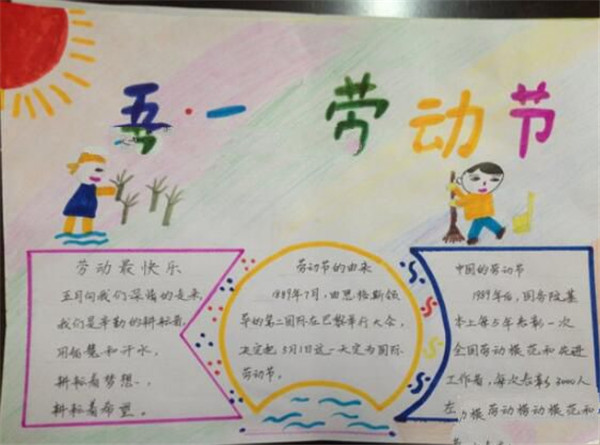 五·一 劳动节
劳动最快乐
五月向我们深情的走来,
我们是辛勤的耕耘者,
用智慧和汗水,
耕耘着梦想、,
耕耘着希望。
劳动节的由来
1889年7月,由恩格斯领
导的第二国际在巴黎举行大会,
决定把5月1日这一天定为国际
劳动节。
中国的劳动节
1989年后,国务院基
本上每5年表彰一次
全国劳动模范和先进
工作者,每次表彰3000人
左
动模劳动模动模范和